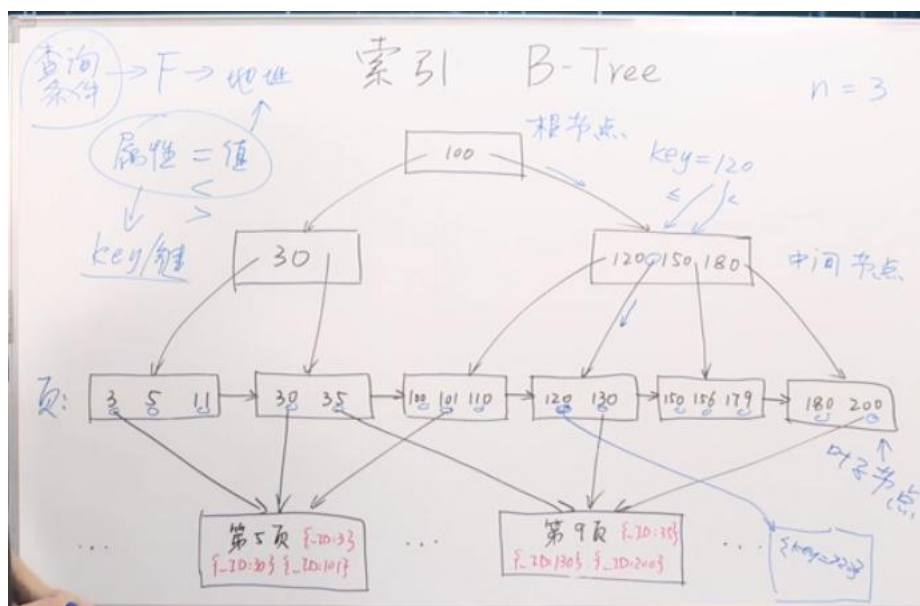 索引 B-Tree
n = 3
查询
条件
→ F → 地址
属性 = 值
<
>
key/键
根节点
100
key=120
≤ <
30
120 150 180
中间节点
页:
3 5 11
30 35
100 101 110
120 130
150 156 179
180 200
叶子节点
...
第5页 {_ID:3}
{_ID:30} {_ID:101}
...
第9页 {_ID:35}
{_ID:130} {_ID:200}
...